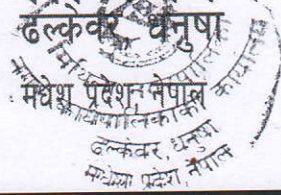 ढल्केवर, धनुषा
मधेश प्रदेश, नेपाल
कार्यपालिकाको कार्यालय
ढल्केवर, धनुषा
मधेश प्रदेश, नेपाल